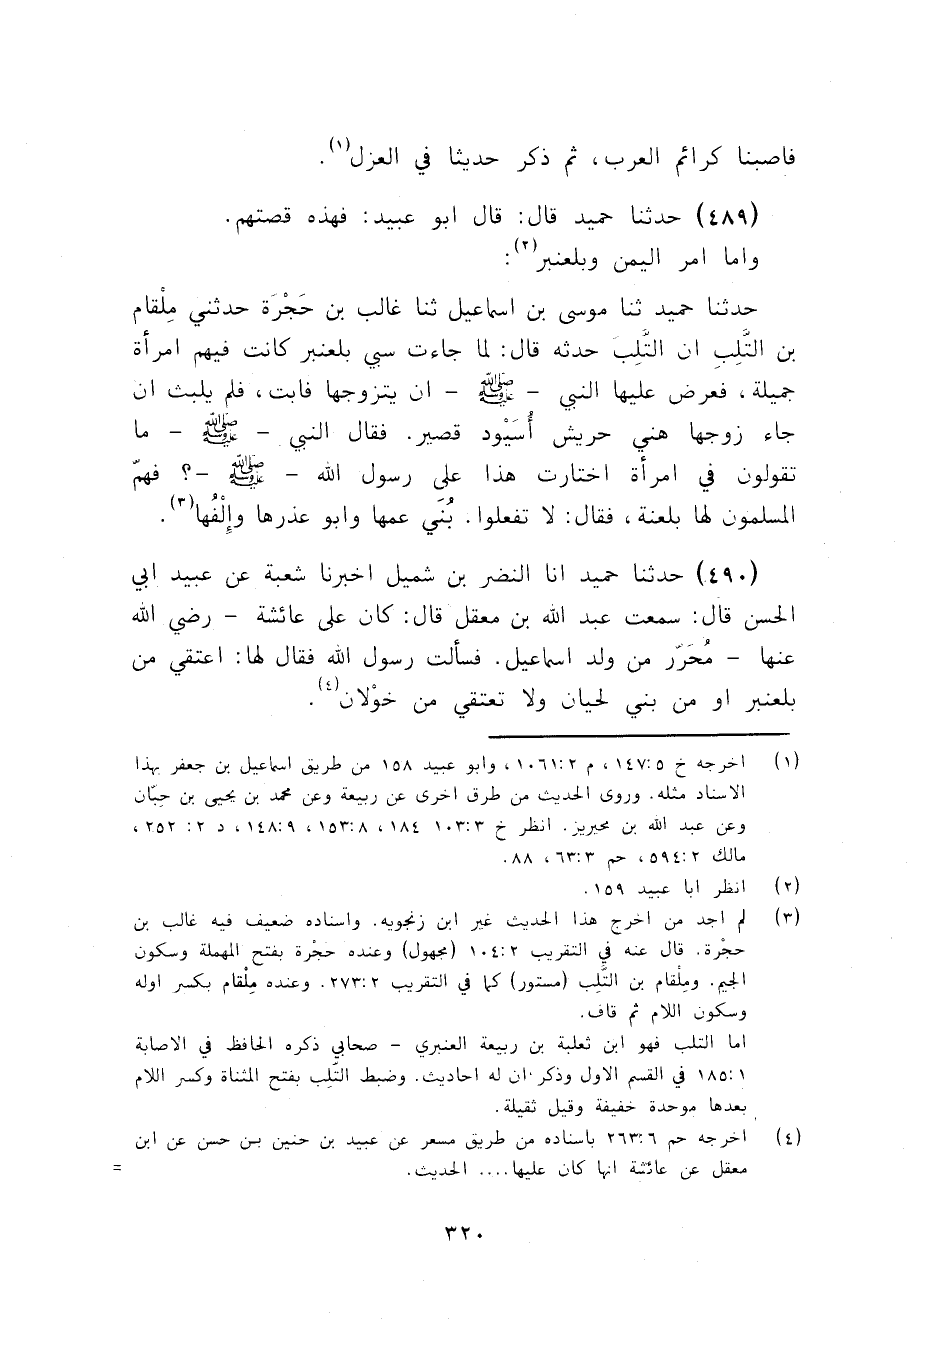 فاصبنا كرائم العرب، ثم ذكر حديثا في العزل(١).
(٤٨٩) حدثنا حميد قال: قال ابو عبيد: فهذه قصتهم.
واما امر اليمن وبلعنبر(٢):
حدثنا حميد ثنا موسى بن اسماعيل ثنا غالب بن حَجْرَة حدثني مِلْقام
بن التَّلِبِ ان التَّلِبَ حدثه قال: لما جاءت سبي بلعنبر كانت فيهم امرأة
جميلة، فعرض عليها النبي - ﷺ - ان يتزوجها فابت، فلم يلبث ان
جاء زوجها هني حريش أُسَيْود قصير. فقال النبي - ﷺ - ما
تقولون في امرأة اختارت هذا على رسول الله - ﷺ -؟ فهمّ
المسلمون لها بلعنة، فقال: لا تفعلوا. بُنَي عمها وابو عذرها وإلْفُها(٣).
(٤٩٠) حدثنا حميد انا النضر بن شميل اخبرنا شعبة عن عبيد ابي
الحسن قال: سمعت عبد الله بن معقل قال: كان على عائشة - رضي الله
عنها - مُحَرّر من ولد اسماعيل. فسألت رسول الله فقال لها: اعتقي من
بلعنبر او من بني لحيان ولا تعتقي من خوْلان(٤).
(١) اخرجه خ ١٤٧:٥، م ١٠٦١:٢، وابو عبيد ١٥٨ من طريق اسماعيل بن جعفر بهذا
الاسناد مثله. وروى الحديث من طرق اخرى عن ربيعة وعن محمد بن يحيى بن حبّان
وعن عبد الله بن محيريز. انظر خ ١٠٣:٣ ١٨٤، ١٥٣:٨، ١٤٨:٩، د ٢: ٢٥٢،
مالك ٥٩٤:٢، حم ٦٣:٣، ٨٨.
(٢) انظر ابا عبيد ١٥٩.
(٣) لم اجد من اخرج هذا الحديث غير ابن زنجويه. واسناده ضعيف فيه غالب بن
حجْرة. قال عنه في التقريب ١٠٤:٢ (مجهول) وعنده حجْرة بفتح المهملة وسكون
الجيم. ومِلْقام بن التَّلِب (مستور) كما في التقريب ٢٧٣:٢. وعنده مِلْقام بكسر اوله
وسكون اللام ثم قاف.
اما التلب فهو ابن ثعلبة بن ربيعة العنبري - صحابي ذكره الحافظ في الاصابة
١٨٥:١ في القسم الاول وذكر ان له احاديث. وضبط التَّلِب بفتح المثناة وكسر اللام
بعدها موحدة خفيفة وقيل ثقيلة.
(٤) اخرجه حم ٢٦٣:٦ باسناده من طريق مسعر عن عبيد بن حنين بن حسن عن ابن
معقل عن عائشة انها كان عليها.... الحديث. =
٣٢٠